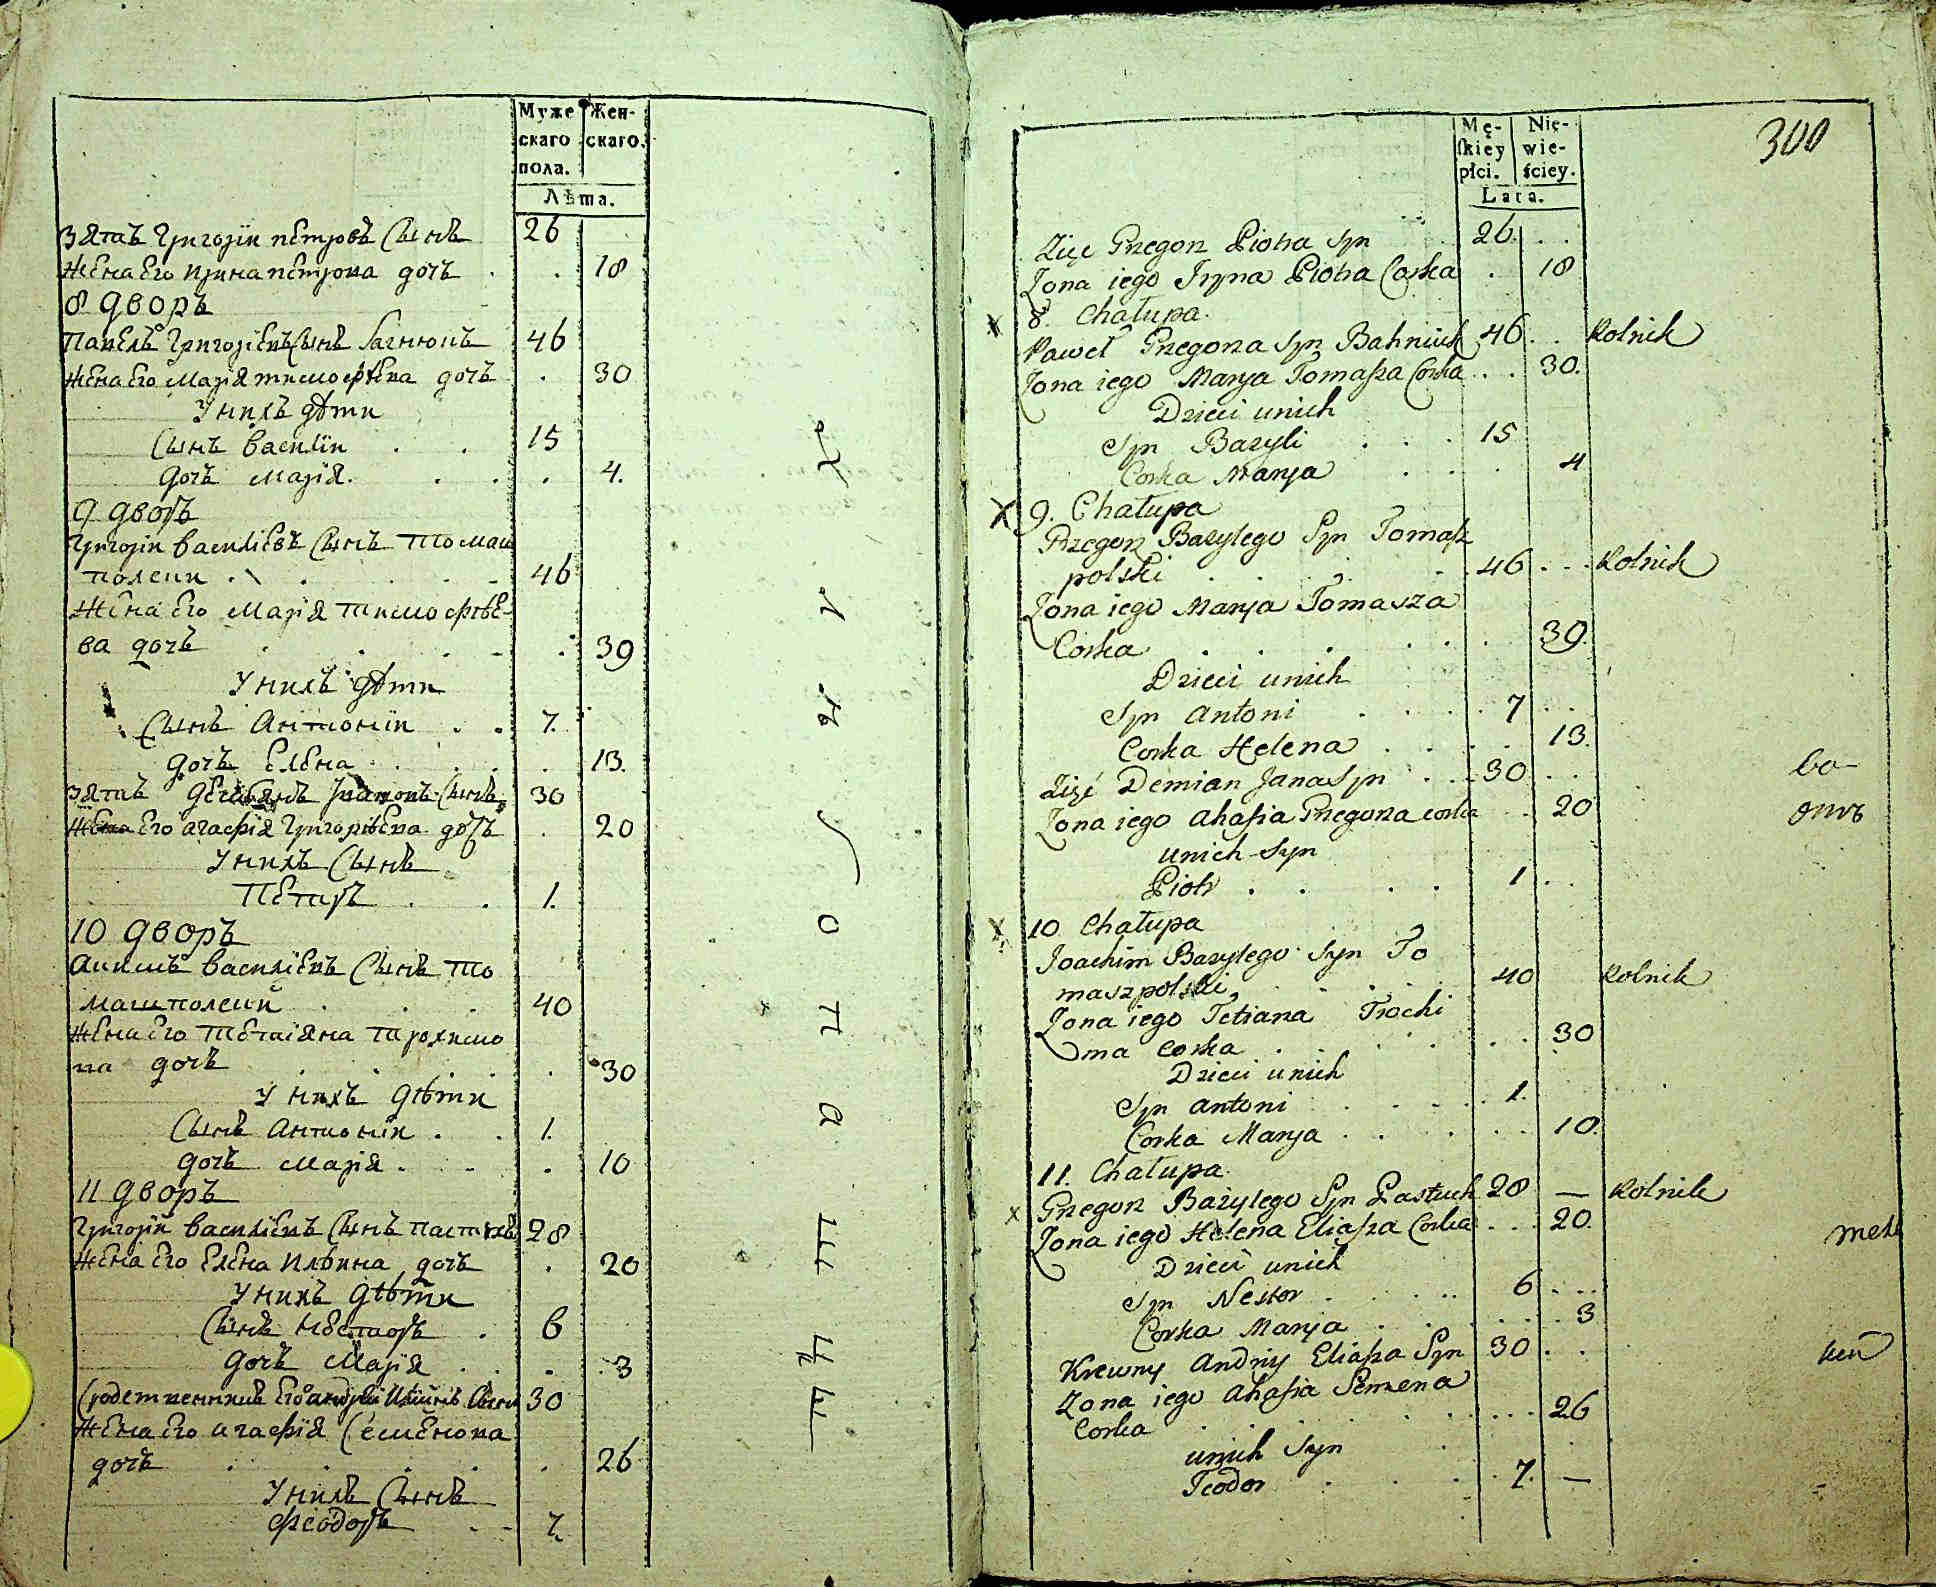 Муже
скаго
пола.
Жен-
скаго.
Лѣта.
Зять Григорій петровъ Сынъ 26
Жена Его ирина петрова дочь . . 18
8 дворъ
Павелъ Григоріевъ Сынъ Багнюкъ 46
Жена Его Марія тимофѣева дочь . 30
У нихъ дѣти
Сынъ василій . . 15
дочь марія. . . . 4.
9 дворъ
Григорій василіевъ Сынъ Томаш
полски . . . . 46
Жена Его Марія тимофѣе-
ва дочь . . . . . 39
У нихъ дѣти
Сынъ Антоній . . 7.
дочь Елена . . . . 13.
Зять Сынъ 30
Жена Его агафія Григоріева дочь . 20
У нихъ Сынъ
Петръ . . 1.
10 дворъ
василіевъ Сынъ То
машполский . . . 40
Жена Его Тетіяна Трохимо
ва дочь . . . . 30
У нихъ дѣти
Сынъ Антоній . . 1.
дочь Марія . . . 10
11 дворъ
Григорій василіевъ Сынъ пастухъ 28
Жена Его Елена Ильина дочь . 20
У нихъ дѣти
Сынъ Несторъ . 6
дочь Марія . . . 3
Сродственникъ Его андрей Сынъ 30
Жена Его агафія Семенова
дочь . . . . . 26
У нихъ Сынъ
Феодоръ . . 7.
Х
л
ѣ
б
о
п
а
ш
ц
ы
300
Mę-
ſkiey
płci.
Nie-
wie-
ściey.
Lata.
Zięć Gregorz Piotra Syn 26. . .
Zona iego Iryna Piotra Corka . 18
8. Chałupa.
Paweł Grzegorza Syn Bahniuk 46 . . Rolnik
Zona iego Marya Tomaſza Corka . . 30.
Dzieci unich
Syn Bazyli . . . 15
Corka Marya . . . 4
9. Chałupa
Grzegorz Bazylego Syn Tomaſz
polski . . . . 46 . . . Rolnik
Zona iego Marya Tomasza
Corka . . . . . . 39.
Dzieci unich
Syn Antoni . . . . 7 . .
Corka Helena . . . . . 13.
Zięć Demian Jana Syn . . . 30 . . .
Zona iego Ahafia Gregorza corka . . 20
unich Syn
Piotr . . . . 1 . .
10 Chałupa
Joachim Bazylego Syn To
maszpolski . . . . 40 Rolnik
Zona iego Tetiana Trochi
ma Corka . . . . . . 30
Dzieci unich
Syn Antoni . . . . 1.
Corka Marya . . . . . . 10.
11. Chałupa
Gregorz Bazylego Syn Pastuch 28 — Rolnik
Zona iego Helena Eliaſza Corka . . . 20.
Dzieci unich
Syn Nestor . . . . . 6 . . .
Corka Marya . . . . . . 3
Krewny Andriy Eliaſza Syn 30 . .
Zona iego Ahafia Semena
Corka . . . . . . . . 26
unich Syn
Teodor . . . . 7. —